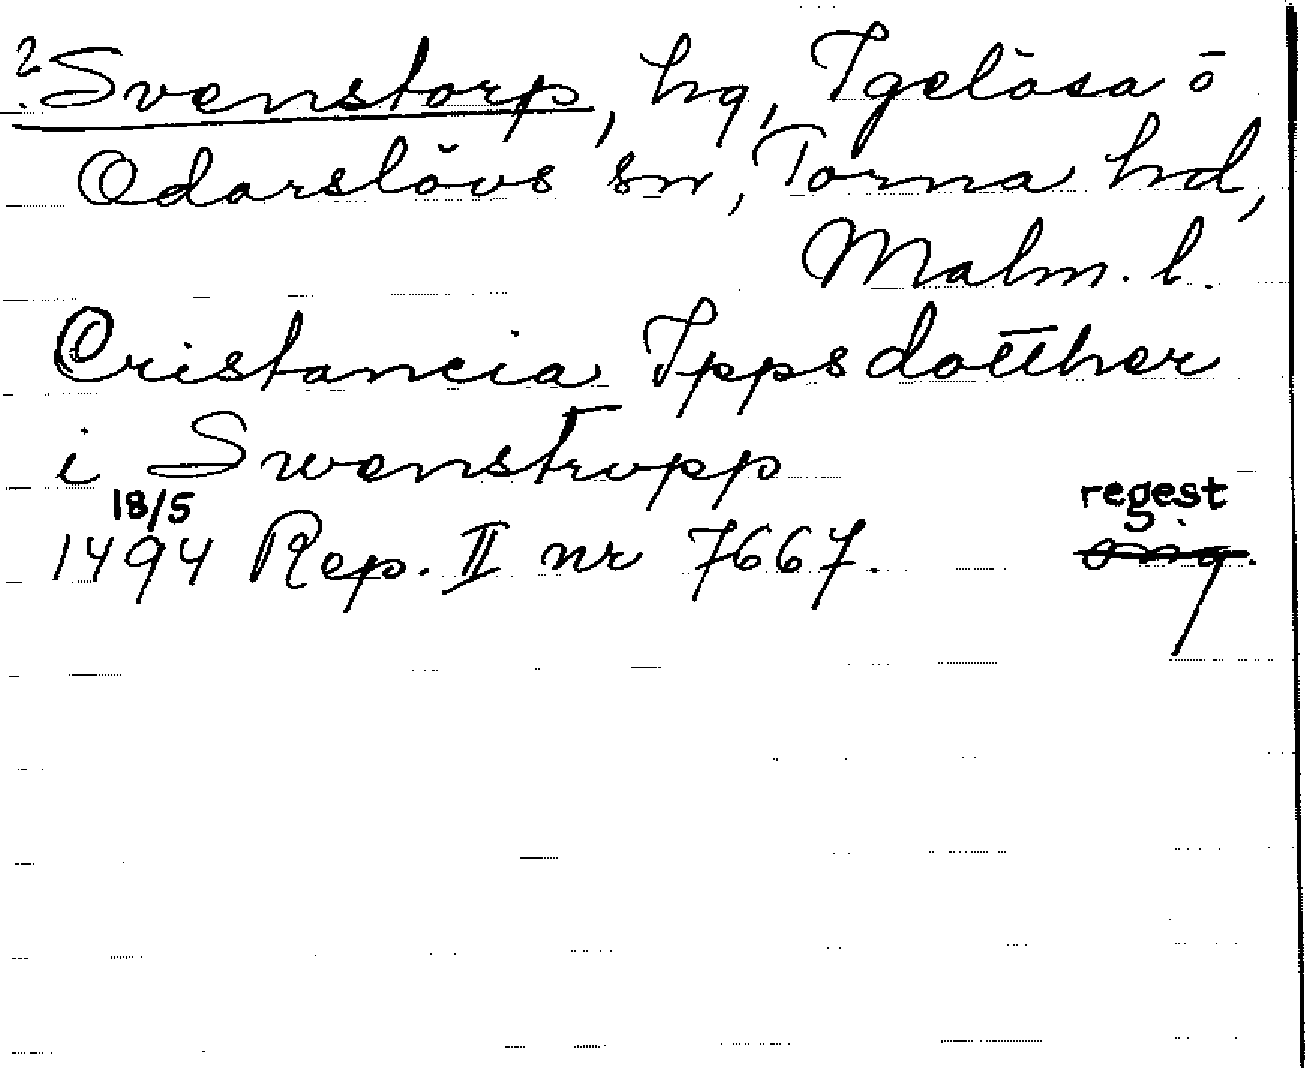 ? Svenstorp, hg, Igelösa o
Odarslövs sn, Torna hd,
Malm. l.
Cristancia Ippsdotther
i Swenstrupp
18/5 regest
1494 Rep. II nr 7667. orig.